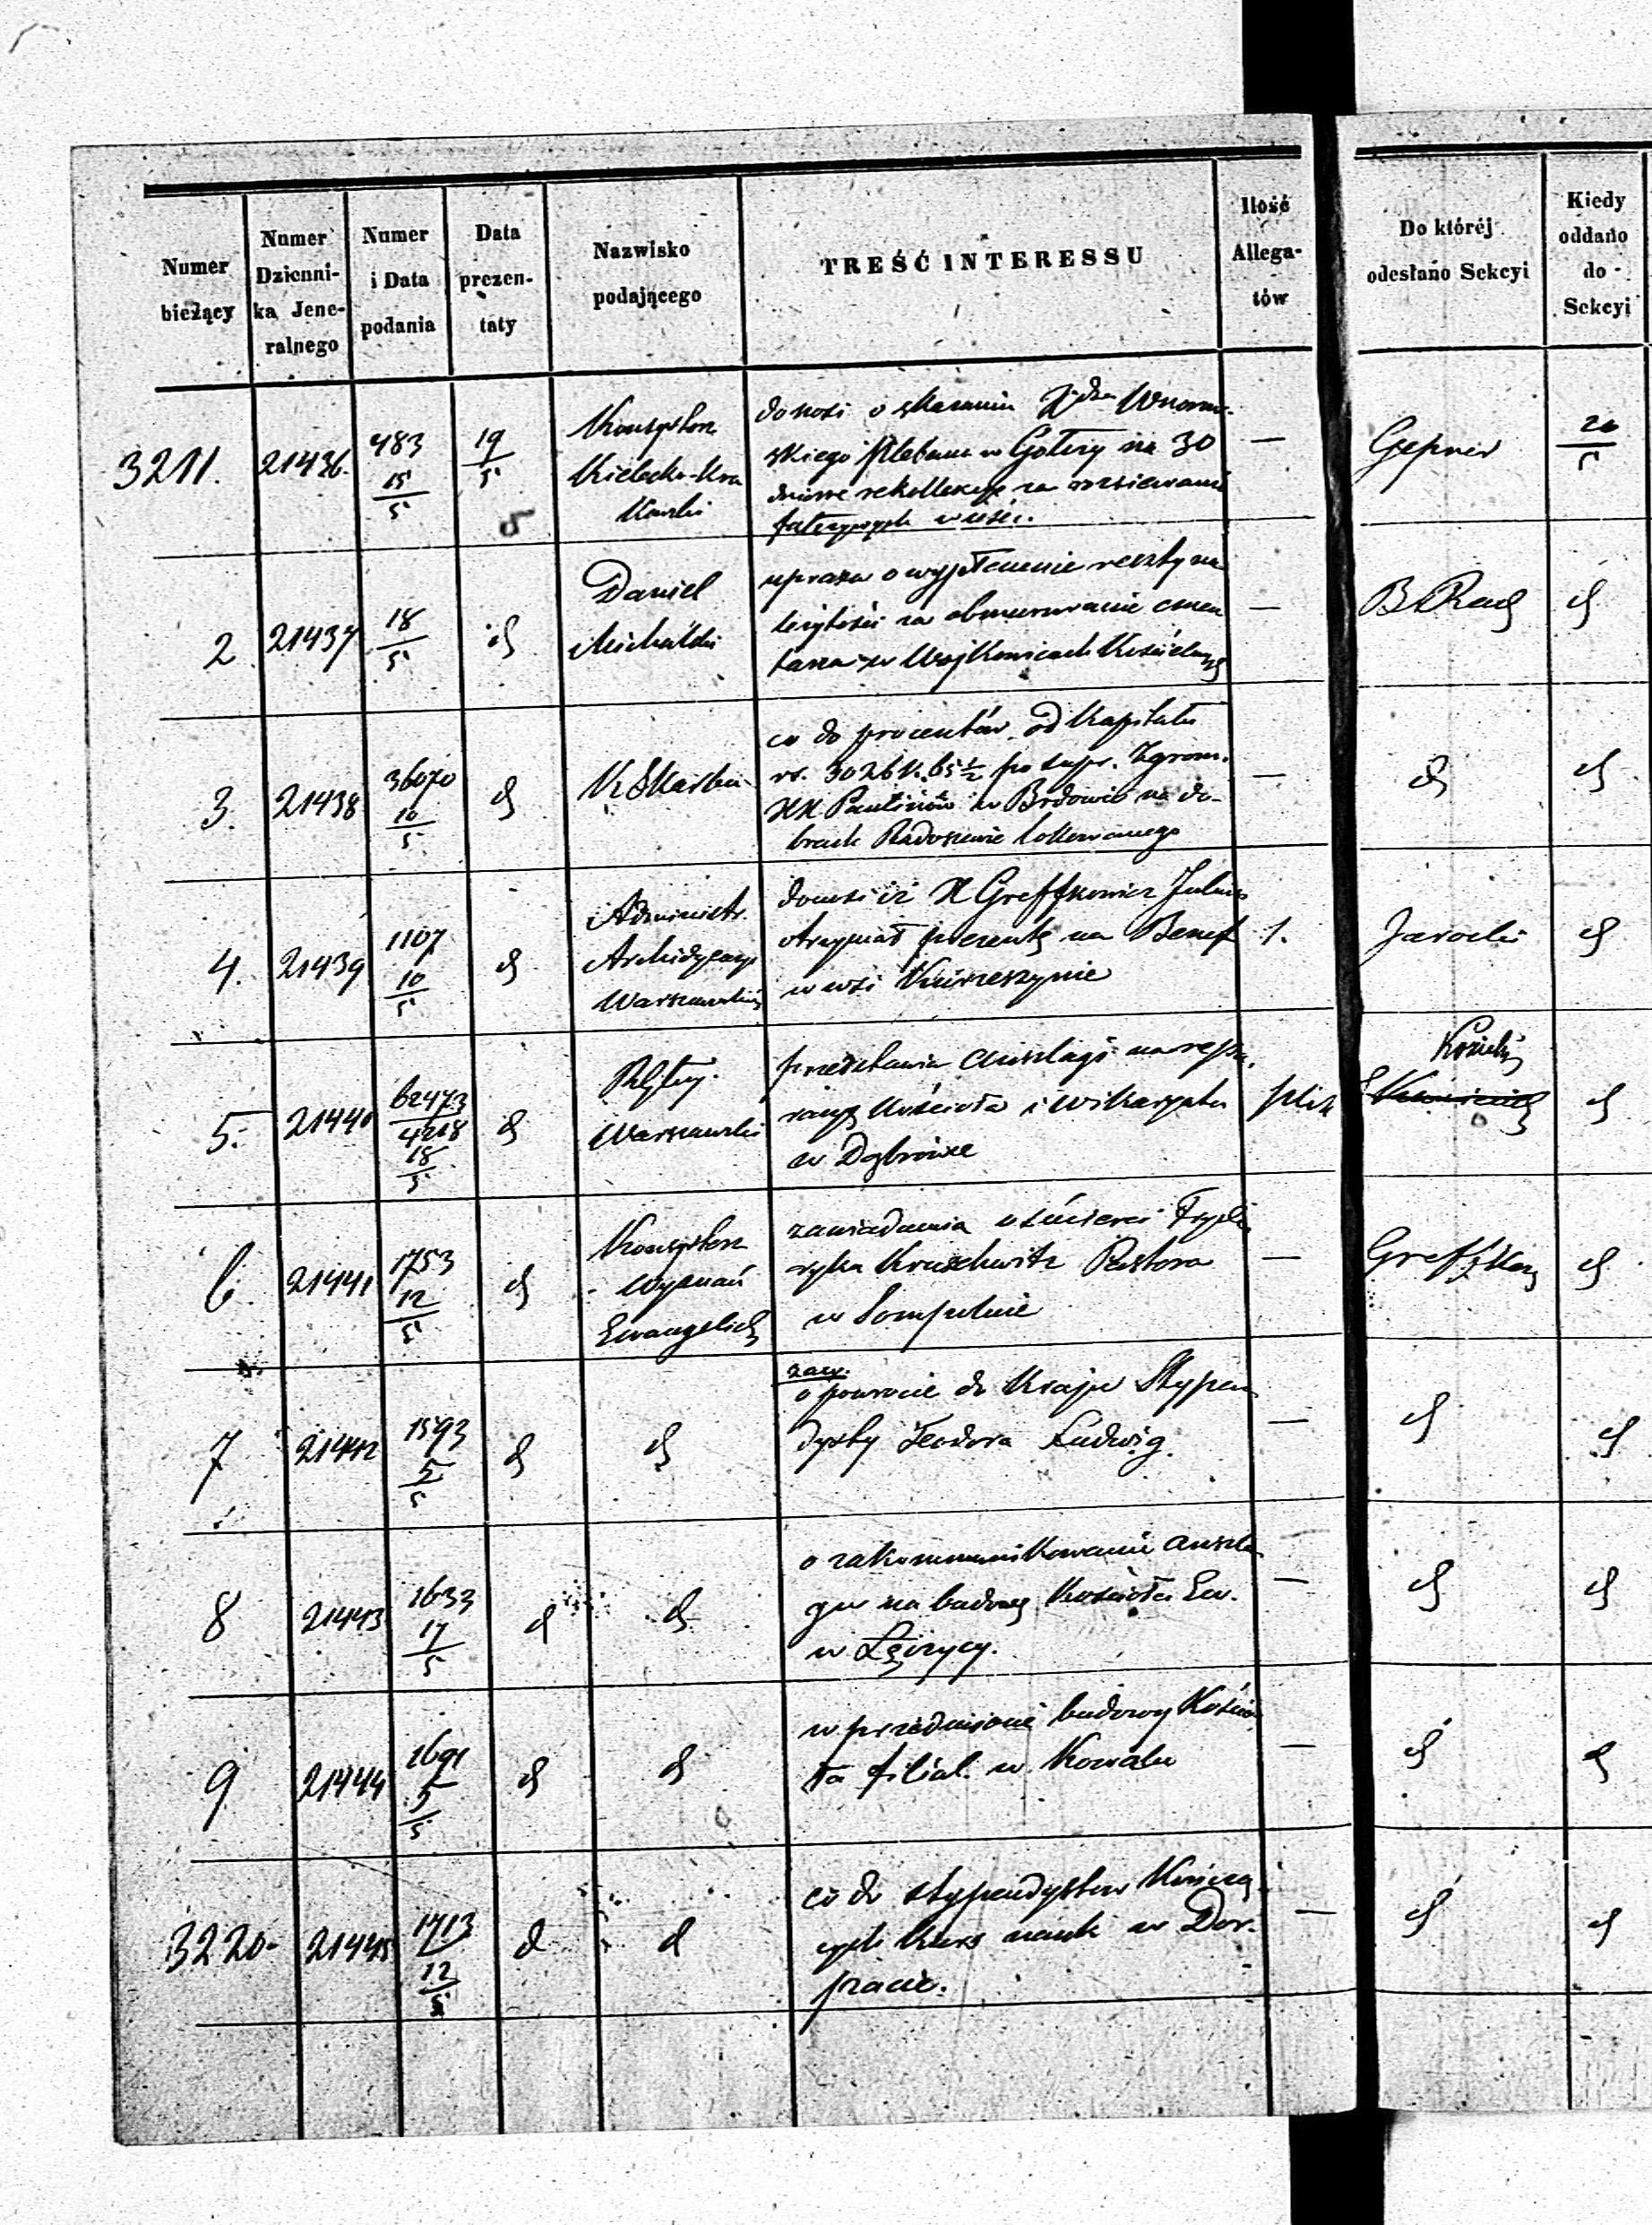 Numer bieżący | Numer Dziennika Jeneralnego | Numer i Data podania | Data prezentaty | Nazwisko podającego | TREŚĆ INTERESSU | Ilość Allegatów | Do której odesłano Sekcyi | Kiedy oddano do Sekcyi
3211. 21436. 483 15/5 19/5
Konsystorz
Kielecko-Kra
kowski
donosi o skazaniu Xdza
skiego Plebana w na 30
dniowe rekollekcye za rozsiewanie
fałszywych wieści.
—
Gepner
20/5
2 21437 18/5 d
Daniel
Michalski
uprasza o wypłacenie reszty na
leżytości za obmurowanie cmen
tarza w Wojkowicach Kościelnych
—
B Rad
d
3. 21438 36070 10/5 d
K Skarbu
co do procentów od Kapitału
rs. 3026 k. 65 1/2 po supr. Zgrom.
XX Paulinów w Brdowie na do-
brach Radoszewie lokowanego
—
d
d
4. 21439 1107 10/5 d
Administr.
Archidyecezyi
Warszawskiej
donosi iż X Greffkowicz Julian
otrzymał prezentę na Benef
w wsi
1.
Jarocki
d
5. 21440 62473/4218 18/5 d
RGbny
Warszawski
przedstawia Anszlagi na repa
racyę Kościoła i Wikaryatu
w Dąbrówce
plik
d
6. 21441 1753 12/5 d
Konsystorz
Wyznań
Ewangelick
zawiadamia o śmierci Fryde
ryka Kruschwitz Pastora
w Sompolnie
—
Greffkow
d
7 21442 1593 5/5 d
d
zaw.
o powrocie do Kraju Stypen
dysty Teodora Ludwig.
—
d
d
8 21443 1633 17/5 d
d
o zakommunikowanie anszla
gu na budowę Kościoła Ew.
w Łęczycy.
—
d
d
9 21444 1691 5/5 d
d
w przedmiocie budowy Kościo
ła filial. w Kowalu
—
d
d
3220. 21445 1713 12/5 d
d
co do stypendystów Kończą
cych Kurs nauk w Dor-
pacie.
—
d
d